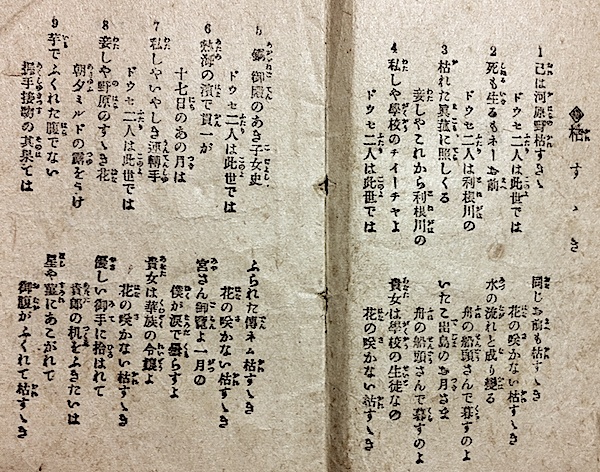 ◎枯すゝき
1 己は河原野枯すゝき　同じお前も枯すゝき
ドウセ二人は此世では　花の咲かない枯すゝき
2 死も生るもネーお前　水の流れと成り變る
ドウセ二人は利根川の　舟の船頭さんで暮すのよ
3 枯れた眞菰に照しくる　いたこ出島のお月さま
妾しやこれから利根川の　舟の船頭さんで暮すのよ
4 私しや學校のチイーチャよ　貴女は學校の生徒なの
ドウセ二人は此世では　花の咲かない枯すゝき
5 銅御殿のあき子女史　ふられた傳ネム枯すゝき
ドウセ二人は此世では　花の咲かない枯すゝき
6 熱海の濱で貫一が　宮さん御覽よ一月の
十七日のあの月は　僕が涙で曇らすよ
7 私しやいやしき運轉手　貴女は華族の令孃よ
ドウセ二人は此世では　花の咲かない枯すゝき
8 妾しや野原のすゝき花　優しい御手に拾はれて
朝夕ミルドの露をうけ　貴郎の机をふきたいは
9 芋でふくれた腹でない　星や菫にあこがれて
握手接吻の其果ては　御腹がふくれて枯すゝき